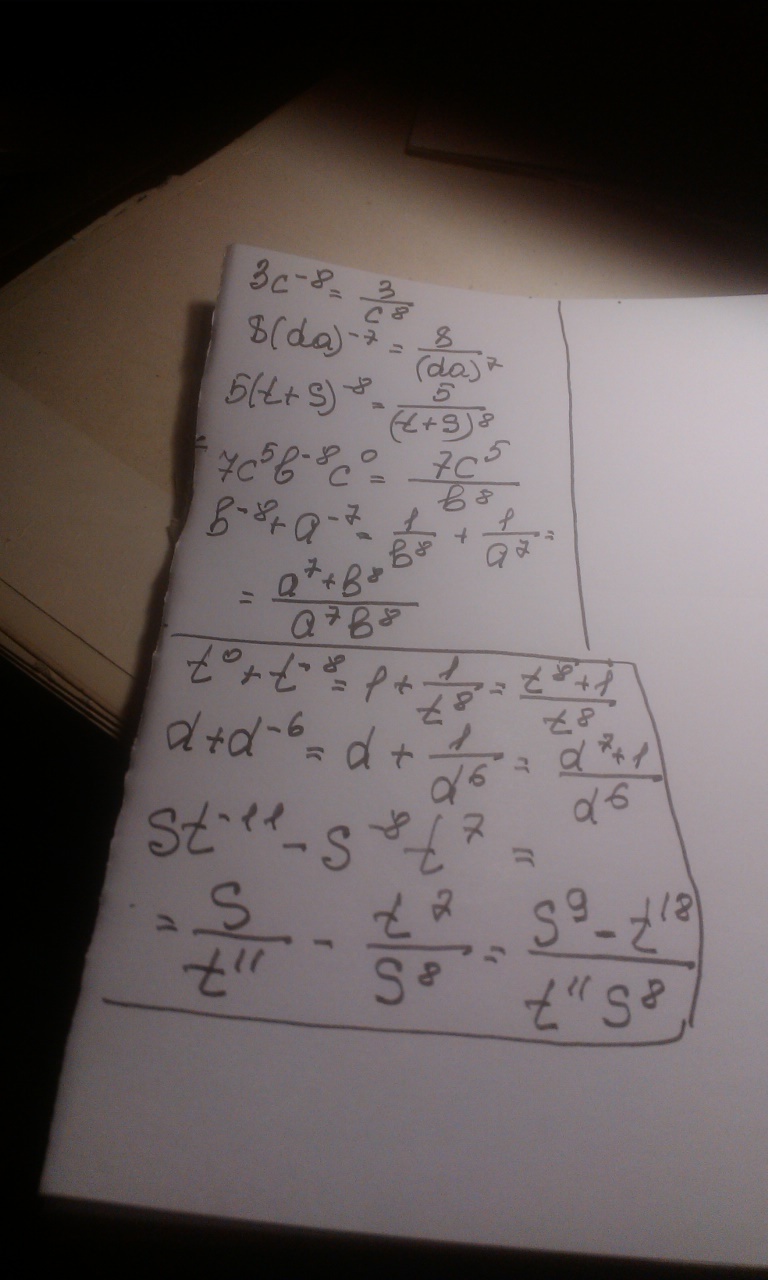 3c⁻⁸ = 3/c⁸
8(da)⁻⁷ = 8/(da)⁷
5(t+s)⁻⁸ = 5/(t+s)⁸
7c⁵b⁻⁸c⁰ = 7c⁵/b⁸
b⁻⁸ + a⁻⁷ = 1/b⁸ + 1/a⁷ =
= (a⁷+b⁸)/(a⁷b⁸)
t⁰ + t⁻⁸ = 1 + 1/t⁸ = (t⁸+1)/t⁸
d + d⁻⁶ = d + 1/d⁶ = (d⁷+1)/d⁶
st⁻¹¹ - s⁻⁸t⁷ =
= s/t¹¹ - t⁷/s⁸ = (s⁹ - t¹⁸)/(t¹¹s⁸)